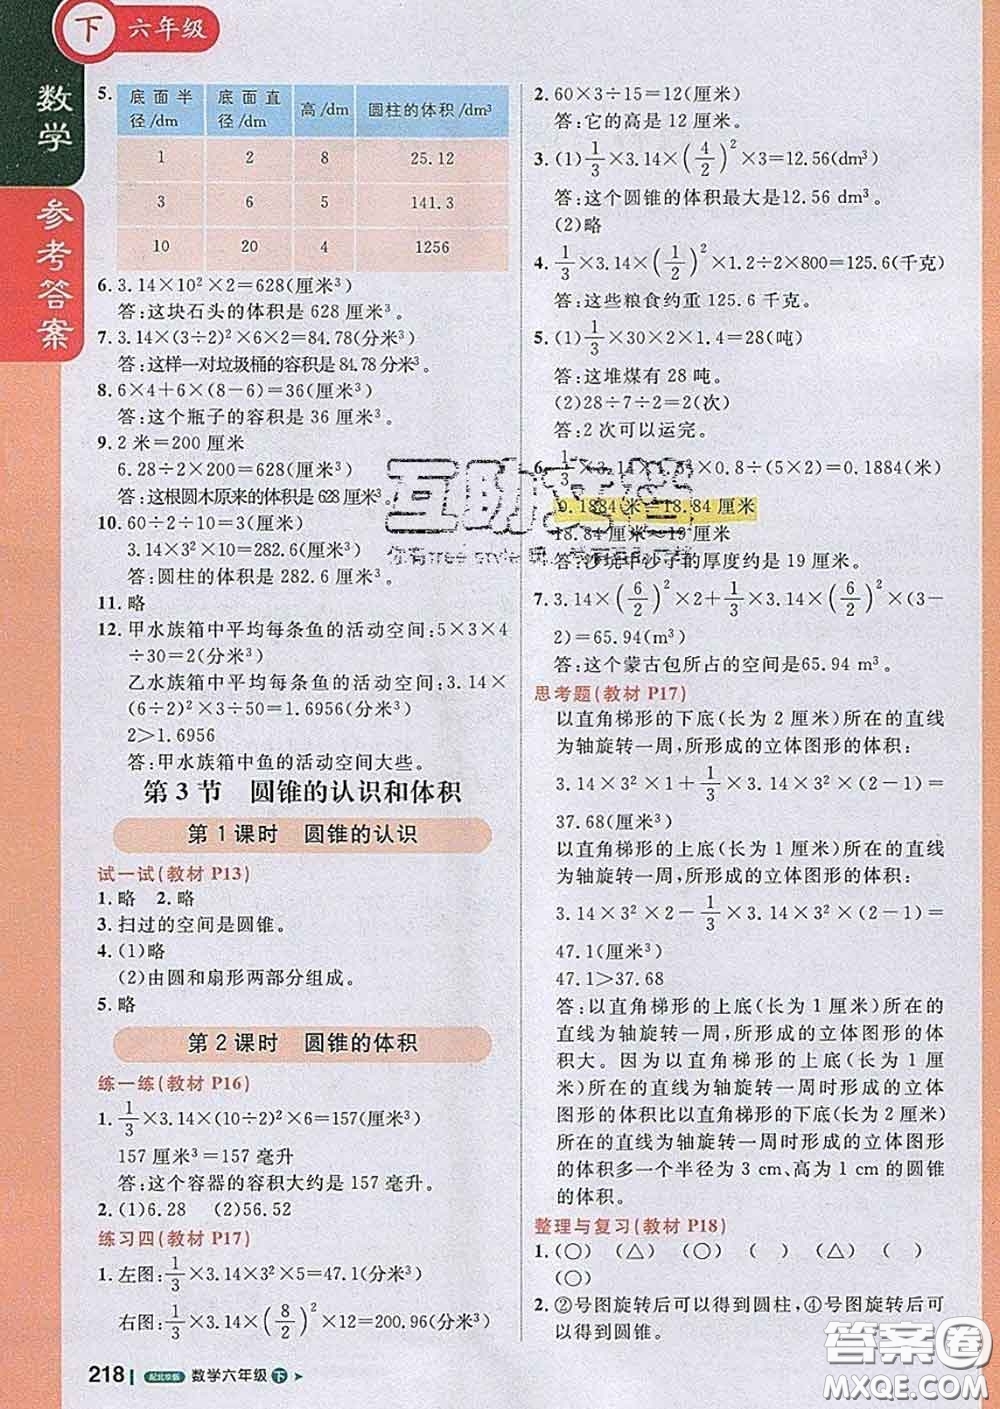 下 六年级
数学
参考答案
5. 底面半径/dm 底面直径/dm 高/dm 圆柱的体积/dm³
1 2 8 25.12
3 6 5 141.3
10 20 4 1256
6. 3.14×10²×2=628(厘米³)
答:这块石头的体积是 628 厘米³。
7. 3.14×(3÷2)²×6×2=84.78(分米³)
答:这样一对垃圾桶的容积是 84.78 分米³。
8. 6×4+6×(8-6)=36(厘米³)
答:这个瓶子的容积是 36 厘米³。
9. 2 米=200 厘米
6.28÷2×200=628(厘米³)
答:这根圆木原来的体积是 628 厘米³。
10. 60÷2÷10=3(厘米)
3.14×3²×10=282.6(厘米³)
答:圆柱的体积是 282.6 厘米³。
11. 略
12. 甲水族箱中平均每条鱼的活动空间:5×3×4
÷30=2(分米³)
乙水族箱中平均每条鱼的活动空间:3.14×
(6÷2)²×3÷50=1.6956(分米³)
2>1.6956
答:甲水族箱中鱼的活动空间大些。
第 3 节 圆锥的认识和体积
第 1 课时 圆锥的认识
试一试(教材 P13)
1. 略 2. 略
3. 扫过的空间是圆锥。
4. (1)略
(2)由圆和扇形两部分组成。
5. 略
第 2 课时 圆锥的体积
练一练(教材 P16)
1. 1/3×3.14×(10÷2)²×6=157(厘米³)
157 厘米³=157 毫升
答:这个容器的容积大约是 157 毫升。
2. (1)6.28 (2)56.52
练习四(教材 P17)
1. 左图:1/3×3.14×3²×5=47.1(分米³)
右图:1/3×3.14×(8/2)²×12=200.96(分米³)
2. 60×3÷15=12(厘米)
答:它的高是 12 厘米。
3. (1)1/3×3.14×(4/2)²×3=12.56(dm³)
答:这个圆锥的体积最大是12.56 dm³。
(2)略
4. 1/3×3.14×(1/2)²×1.2÷2×800=125.6(千克)
答:这些粮食约重 125.6 千克。
5. (1)1/3×30×2×1.4=28(吨)
答:这堆煤有 28 吨。
(2)28÷7÷2=2(次)
答:2 次可以运完。
6. 1/3×3.14× ×0.8÷(5×2)=0.1884(米)
0.1884 米=18.84 厘米
18.84 厘米≈19 厘米
答:沙坑中沙子的厚度约是 19 厘米。
7. 3.14×(6/2)²×2+1/3×3.14×(6/2)²×(3-
2)=65.94(m³)
答:这个蒙古包所占的空间是65.94 m³。
思考题(教材 P17)
以直角梯形的下底(长为 2 厘米)所在的直线
为轴旋转一周,所形成的立体图形的体积:
3.14×3²×1+1/3×3.14×3²×(2-1)=
37.68(厘米³)
以直角梯形的上底(长为 1 厘米)所在的直线
为轴旋转一周,所形成的立体图形的体积:
3.14×3²×2-1/3×3.14×3²×(2-1)=
47.1(厘米³)
47.1>37.68
答:以直角梯形的上底(长为 1 厘米)所在的
直线为轴旋转一周,所形成的立体图形的体
积大。因为以直角梯形的上底(长为 1 厘
米)所在的直线为轴旋转一周时形成的立体
图形的体积比以直角梯形的下底(长为 2 厘米)
所在的直线为轴旋转一周时形成的立体图形
的体积多一个半径为 3 cm、高为 1 cm 的圆锥
的体积。
整理与复习(教材 P18)
1. (○) (△) ( ) (△) ( )
(○)
2. ②号图旋转后可以得到圆柱,④号图旋转后可
以得到圆锥。
218 配北京版 数学六年级 下
互助文档
答案圈
MXQE.COM